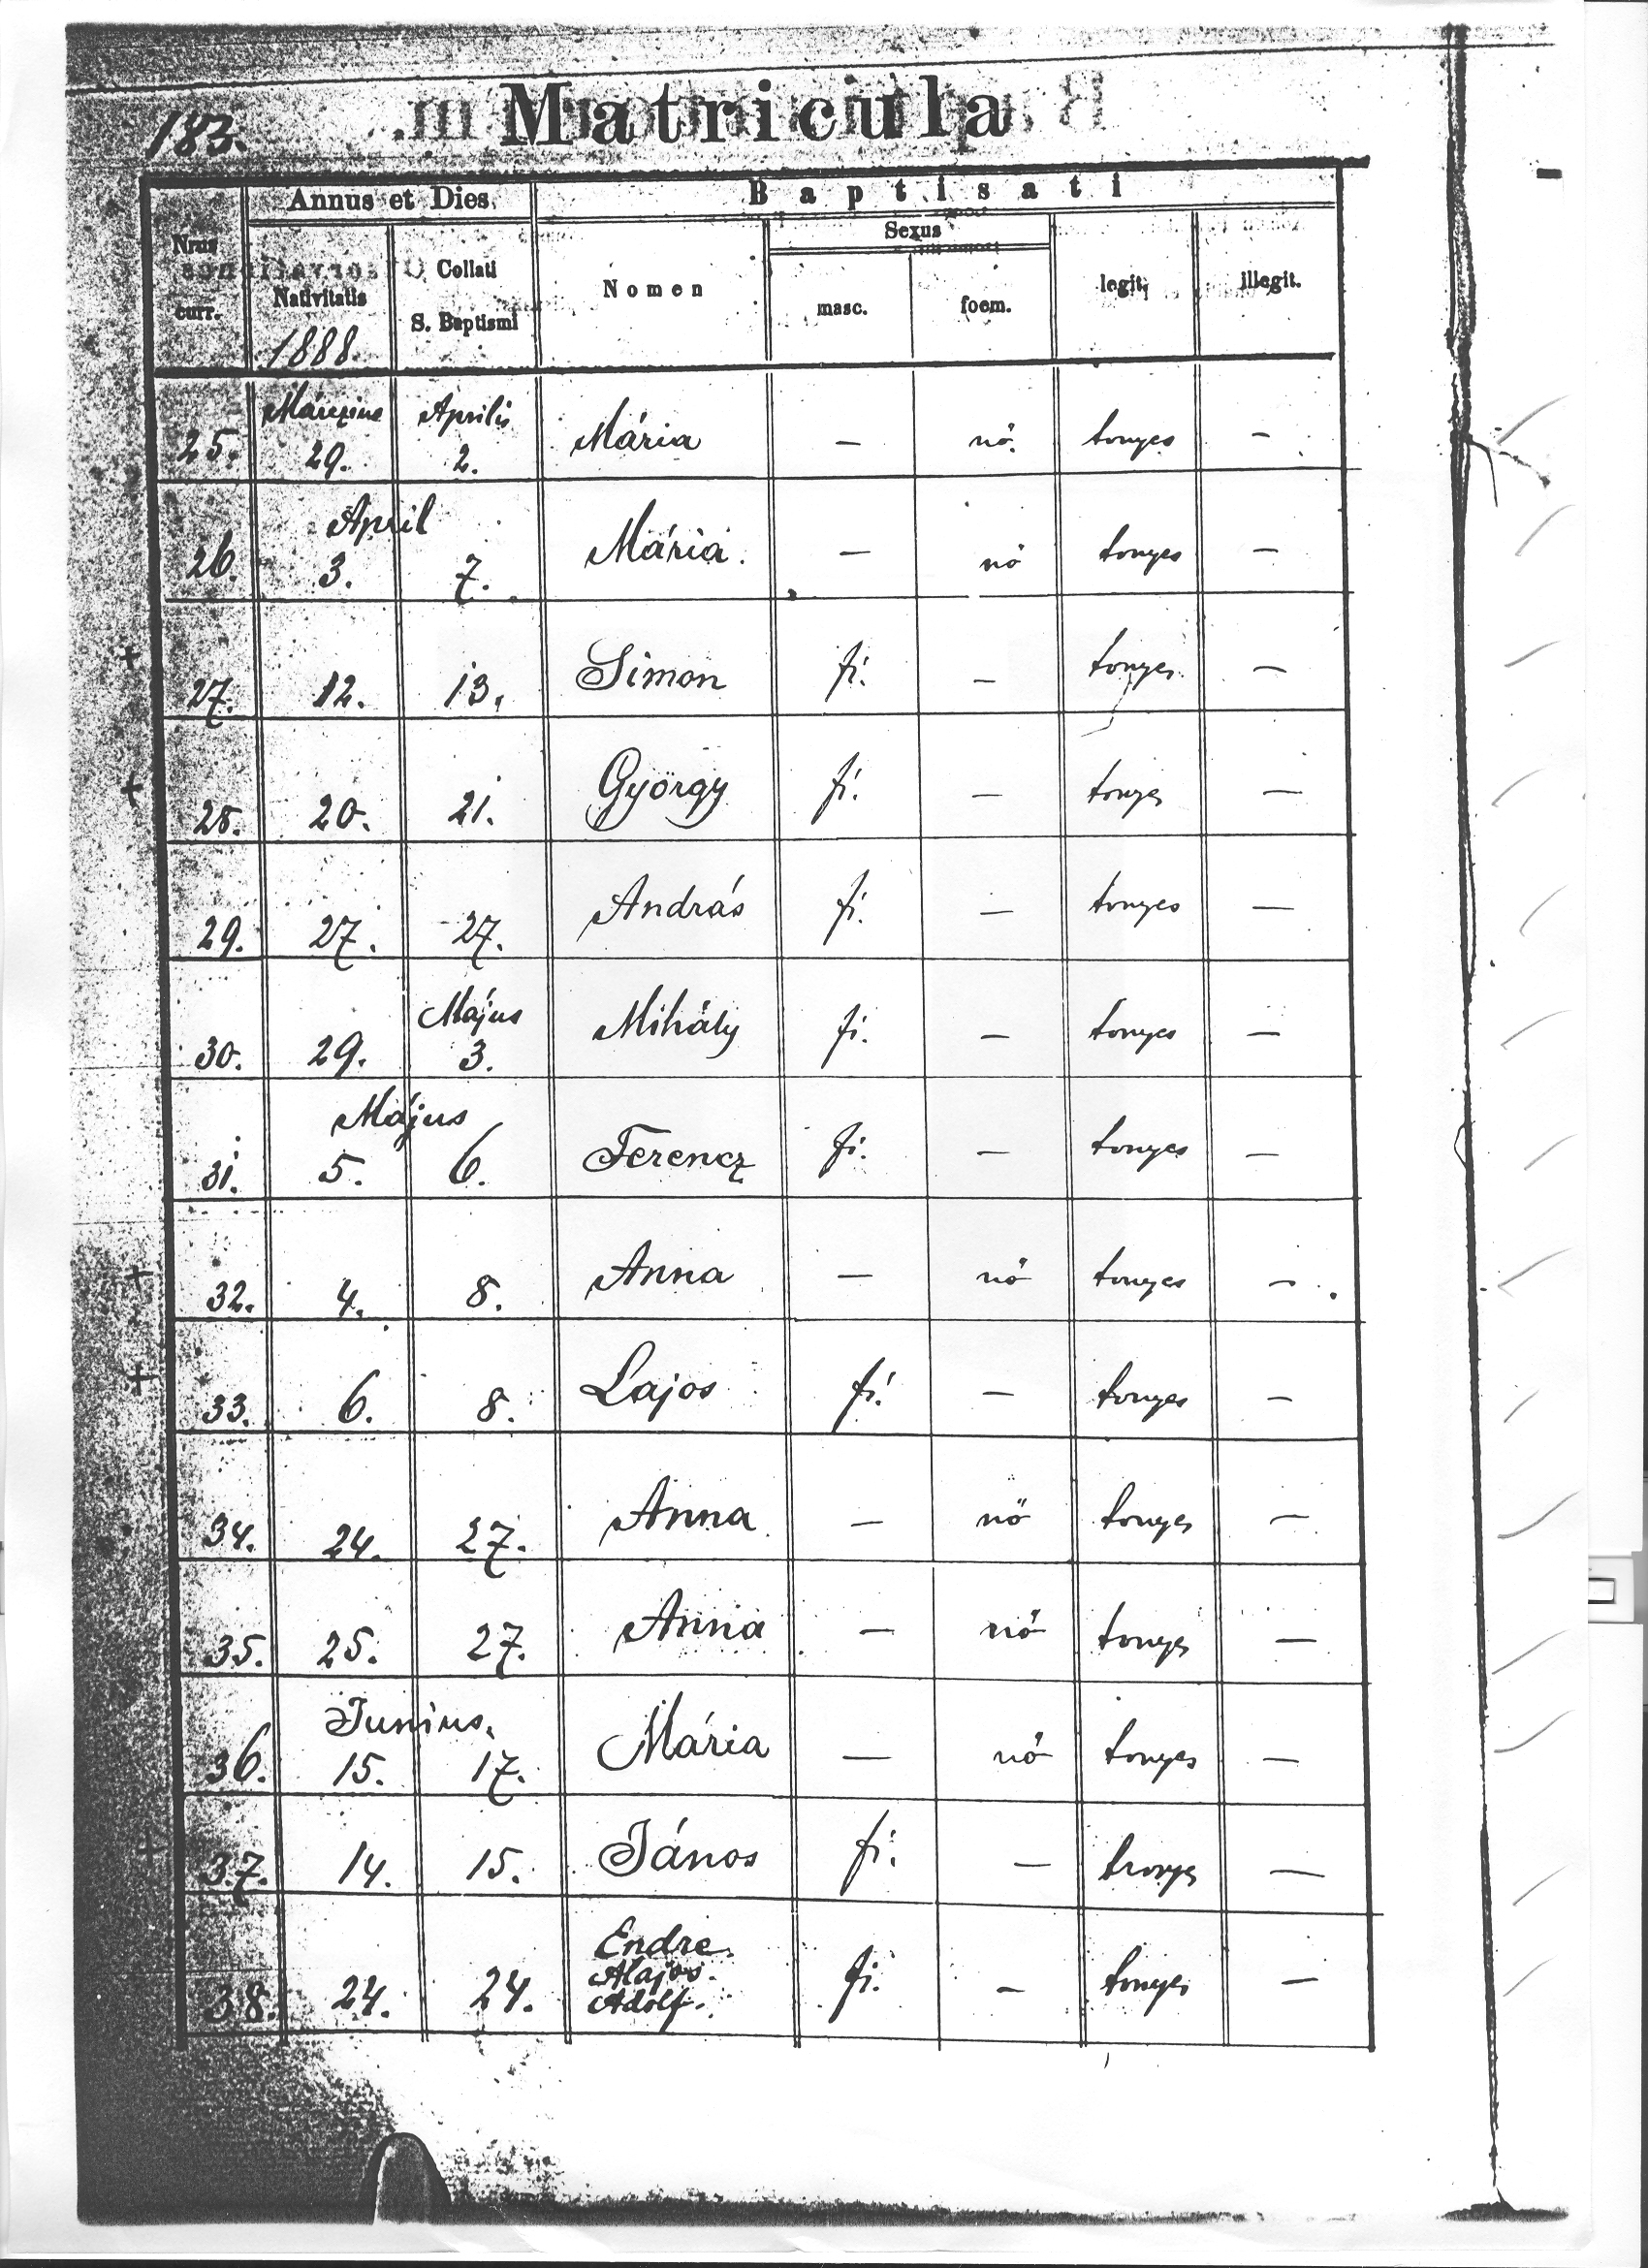 183.
Matricula
Annus et Dies. Baptisati
Nrus curr. Nativitatis 1888 Collati S. Baptismi Nomen Sexus masc. foem. legit. illegit.
Márczius Aprilis
25. 29. 2. Mária — nő. tvnyes —
April
26. 3. 7. Mária. — nő tvnyes —
+ 27. 12. 13. Simon fi. — tvnyes —
+ 28. 20. 21. György fi. — tvnyes —
29. 27. 27. András fi. — tvnyes —
Május
30. 29. 3. Mihály fi. — tvnyes —
Május
31. 5. 6. Ferencz fi. — tvnyes —
+ 32. 4. 8. Anna — nő tvnyes —
+ 33. 6. 8. Lajos fi. — tvnyes —
34. 24. 27. Anna — nő tvnyes —
35. 25. 27. Anna — nő tvnyes —
Junius.
36. 15. 17. Mária — nő tvnyes —
+ 37. 14. 15. János fi. — tvnyes —
Endre.
Alajos.
38. 24. 24. Adolf. fi. — tvnyes —